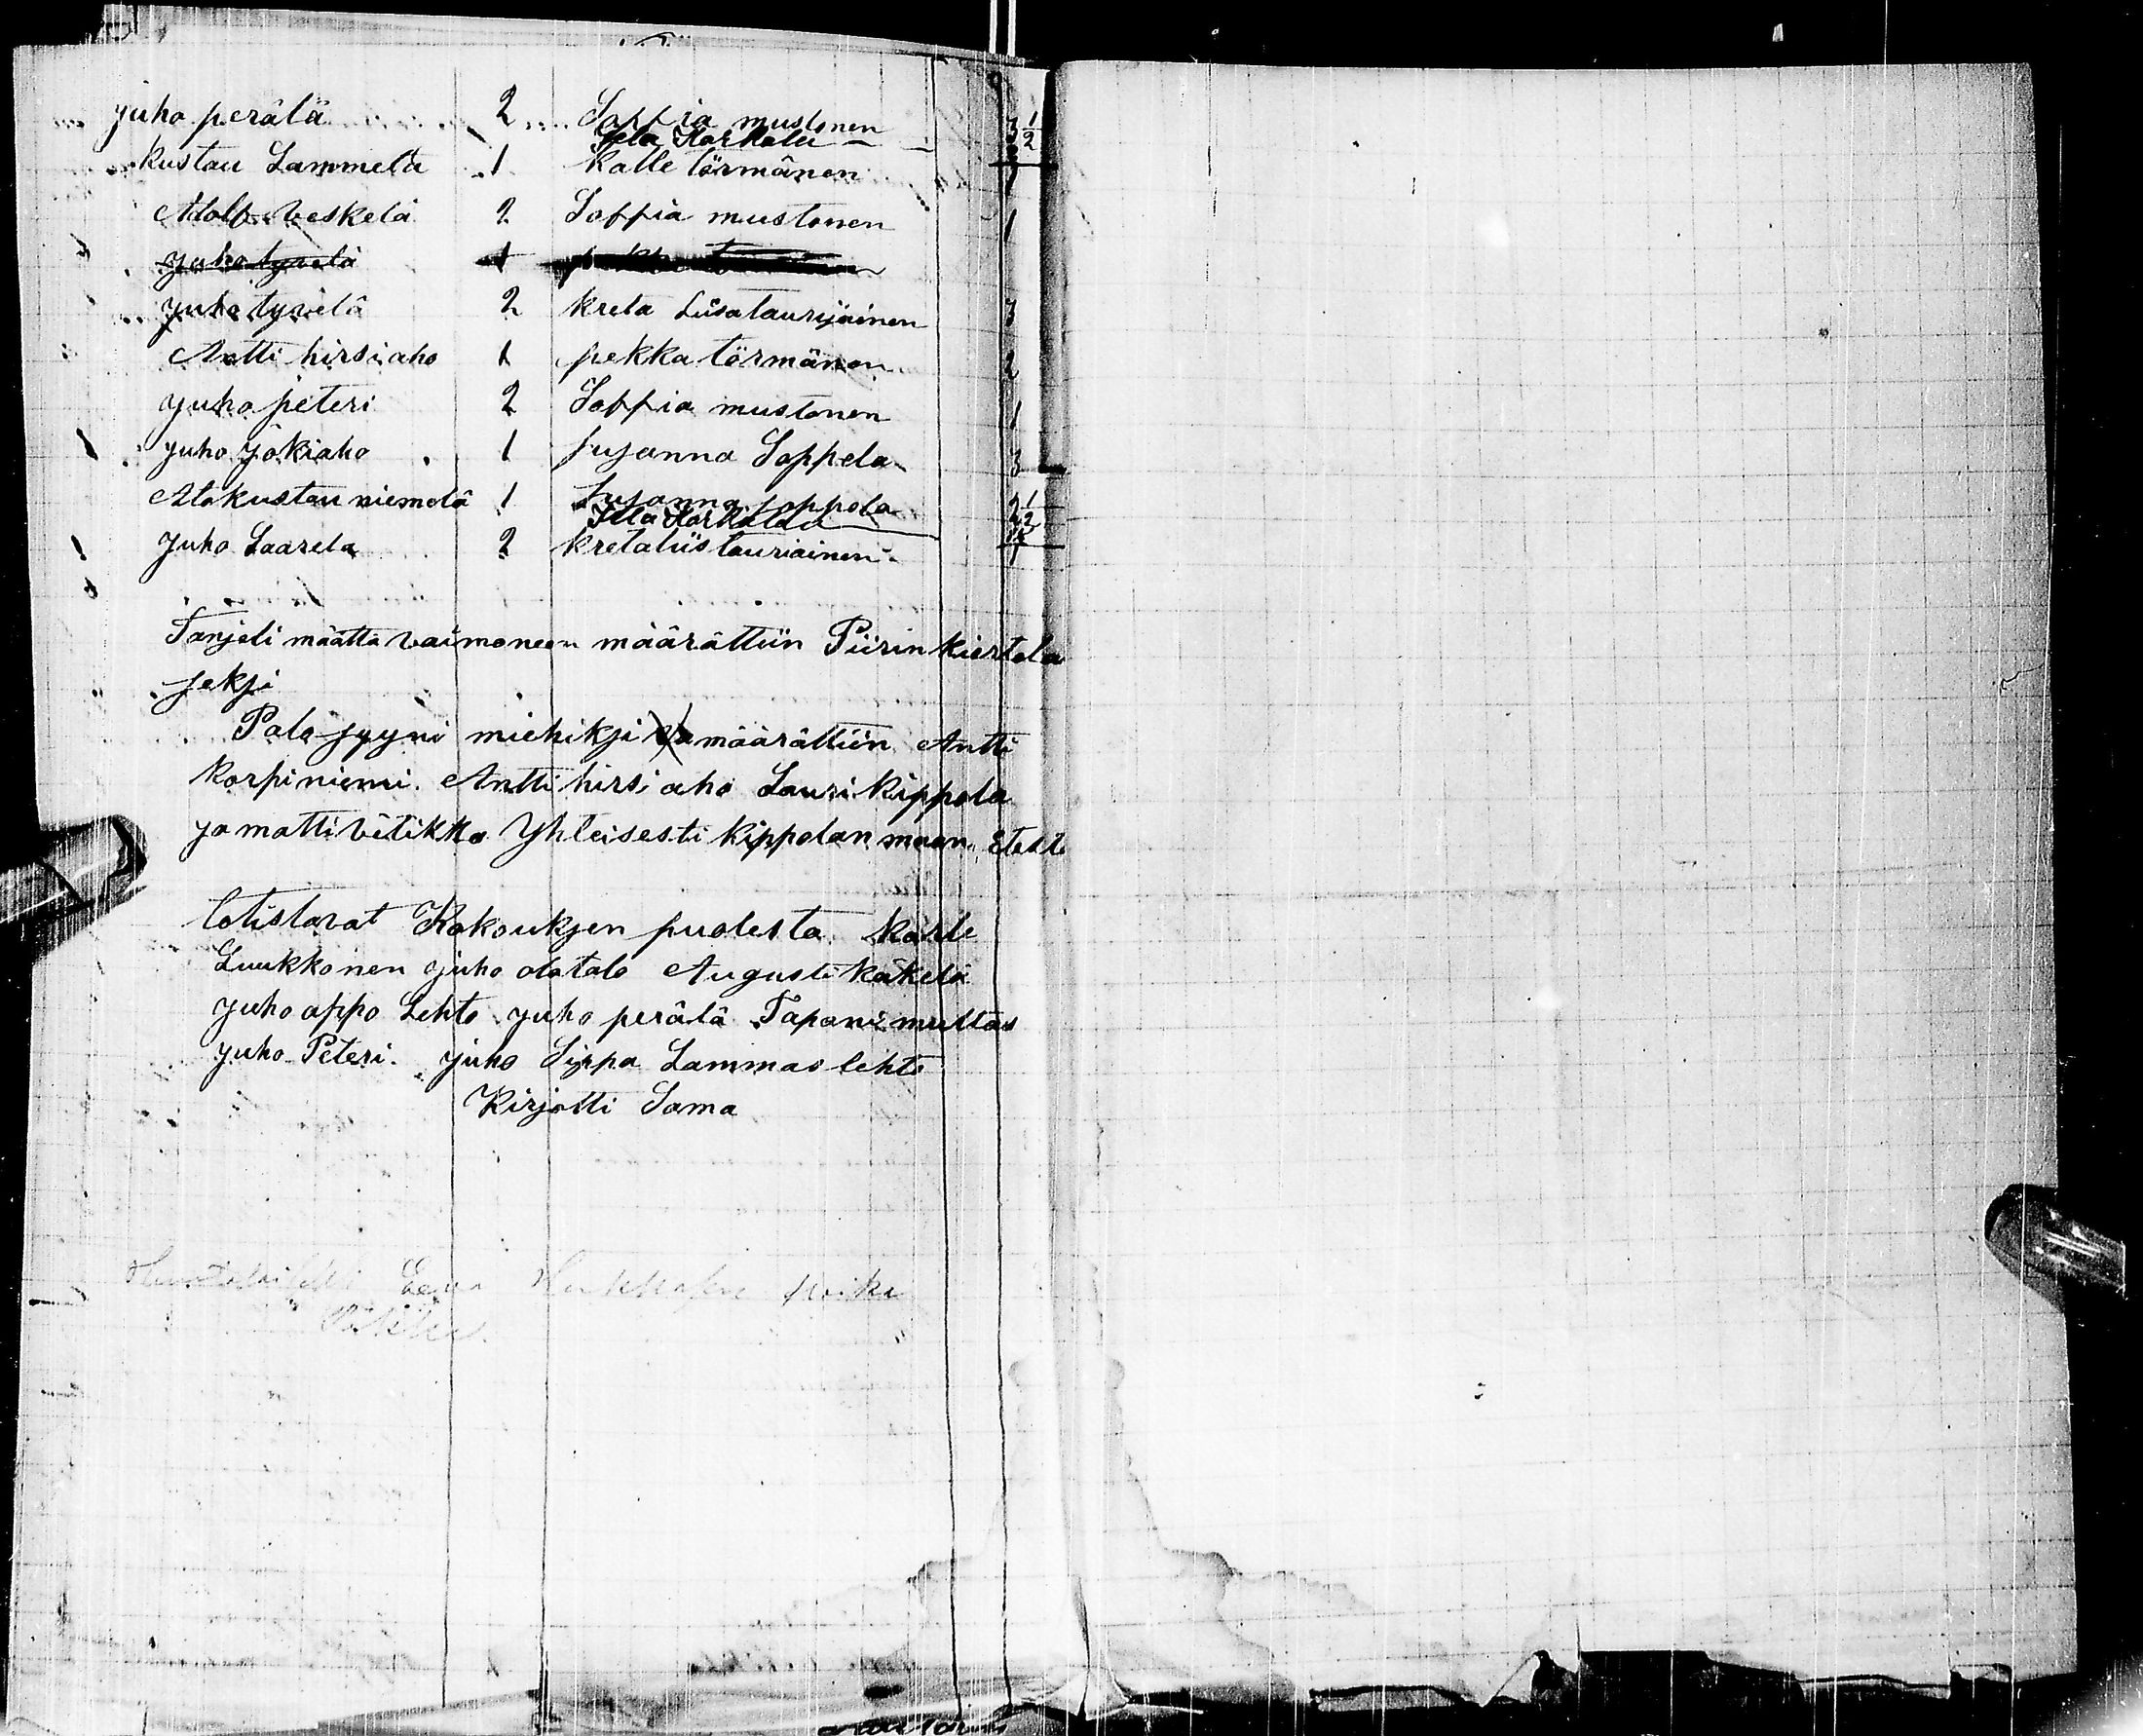 juho perälä 2 Soffia mustonen 3 1/2
Iita Karhalu
kustau Lammela 1 kalle törmänen 1
Adolf veskelä 2 Soffia mustonen 1
juho tyvelä 1
juho tyvelä 2 kreta Liisa taurijainen 3
Antti hirsiaho 1 pekka törmänen 2
juho peteri 2 Soffia mustonen 1
juho jokiaho 1 susanna Soppela 3
Alakustau niemelä 1 susanna soppela 2 1/2
juho Laarela 2 kretaliis tauriainen 1
Tanjeli määttä vaimoneen määrättiin Piirin kiertola
seksi
Palo syyni miehiksi määrättiin Antti
korpiniemi. Antti hirsiaho Lauri kippola
ja matti vitikka Yhteisesti kippolan maan
totistavat Kokouksen puolesta kalle
Luukkonen juho alatalo Augusti käkelä
juho appo Lehto juho perälä Tapani multas
juho Peteri. juho Sippa Lammaslehto
Kirjotti Sama